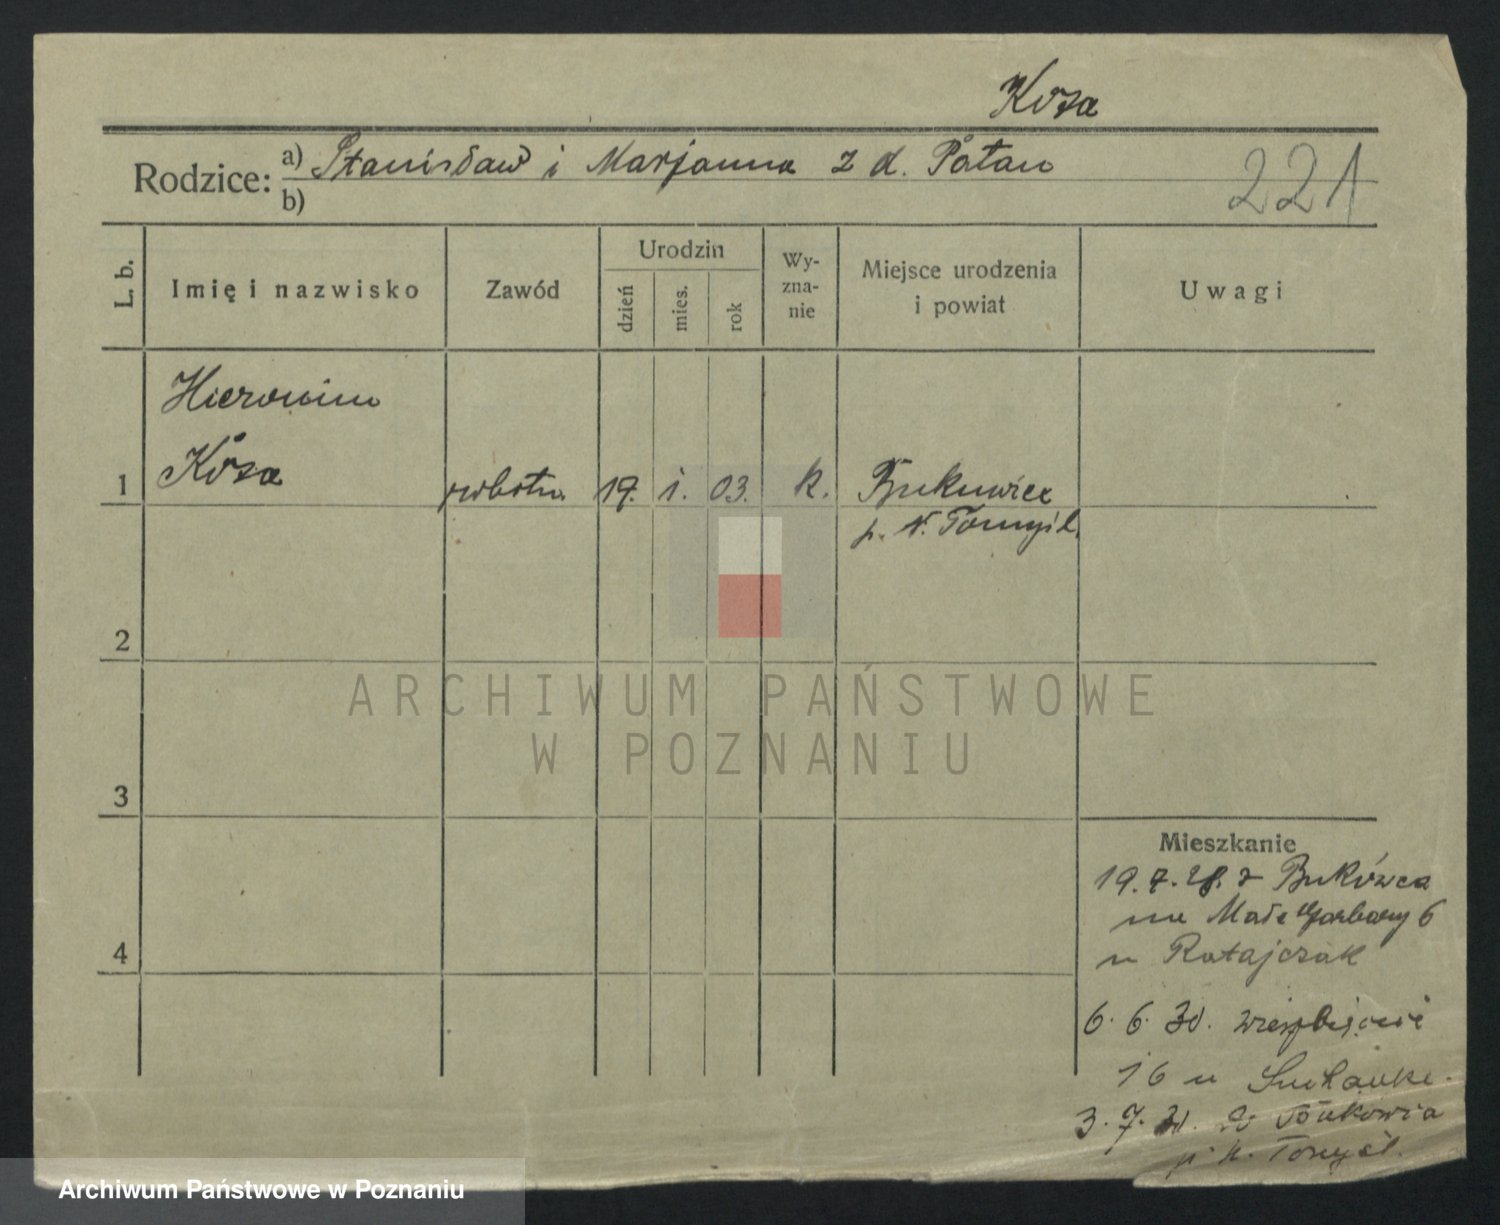 Koza
Rodzice:
a) Stanisław i Marjanna z d. Patan
b)
221
L. b.
Imię i nazwisko
Zawód
Urodzin
dzień
mies.
rok
Wy-
zna-
nie
Miejsce urodzenia
i powiat
Uwagi
Hieronim
1 Koza robotn. 19. 1. 03. k. Bukowiec
p. N. Tomyśl.
2
ARCHIWUM PAŃSTWOWE
W POZNANIU
3
Mieszkanie
19.7.28. z Bukówca
na Małe Garbary 6
4
u Ratajczak
6. 6. 30.
16 u
3. 7. 30. do Bukowca
p. N. Tomyśl.
Archiwum Państwowe w Poznaniu